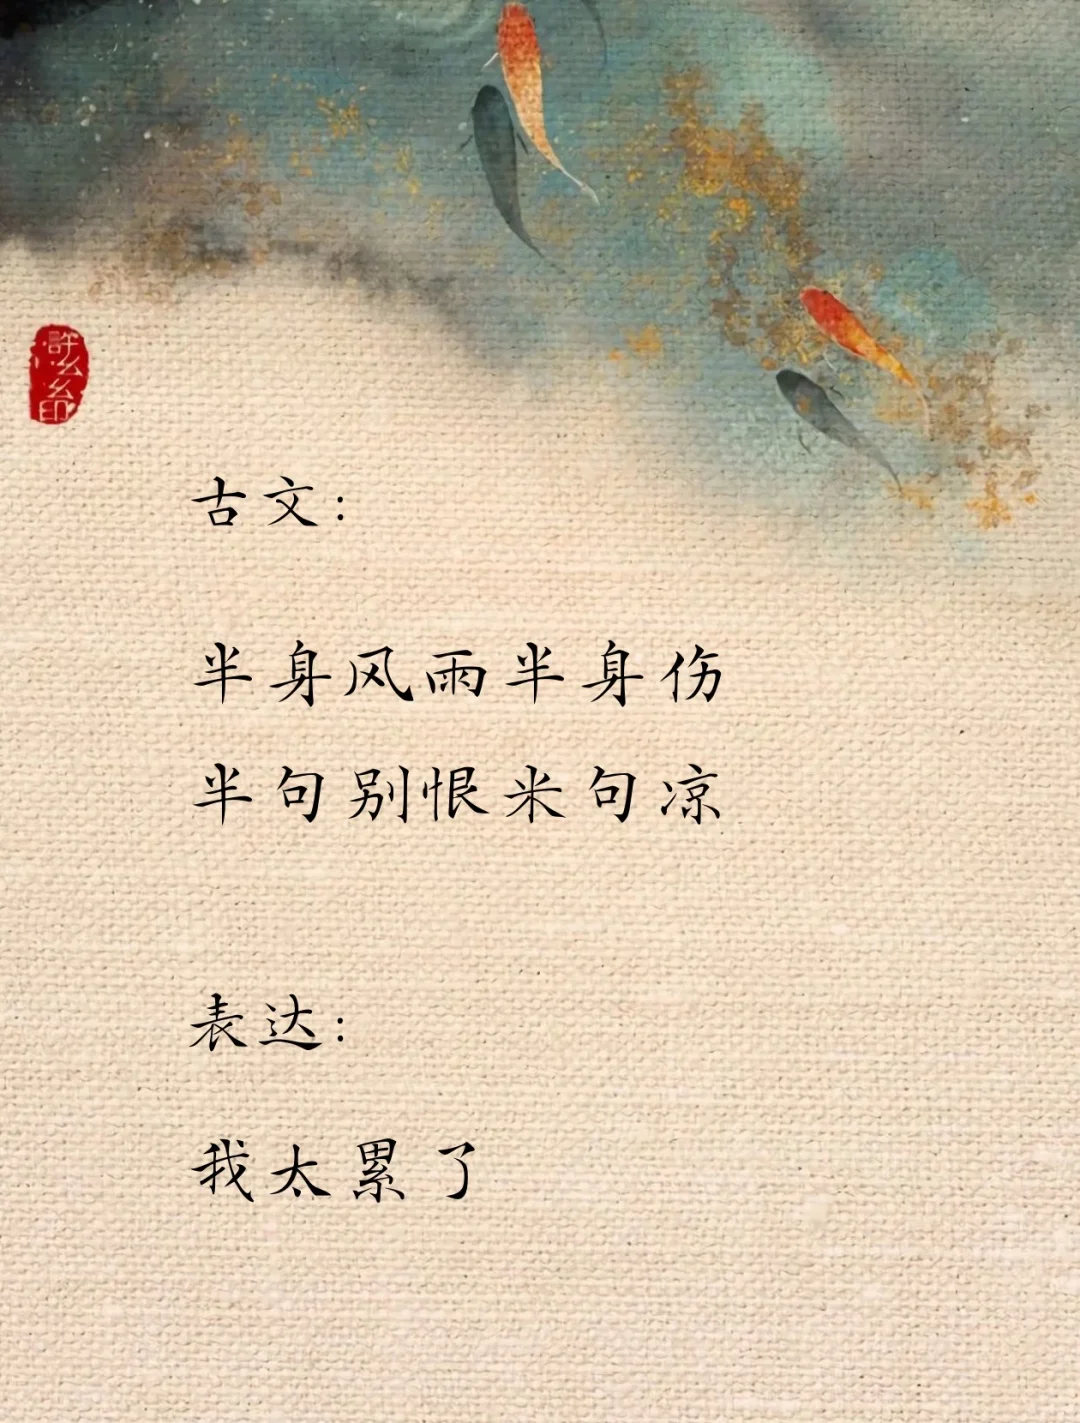 古文:
半身风雨半身伤
半句别恨米句凉
表达:
我太累了